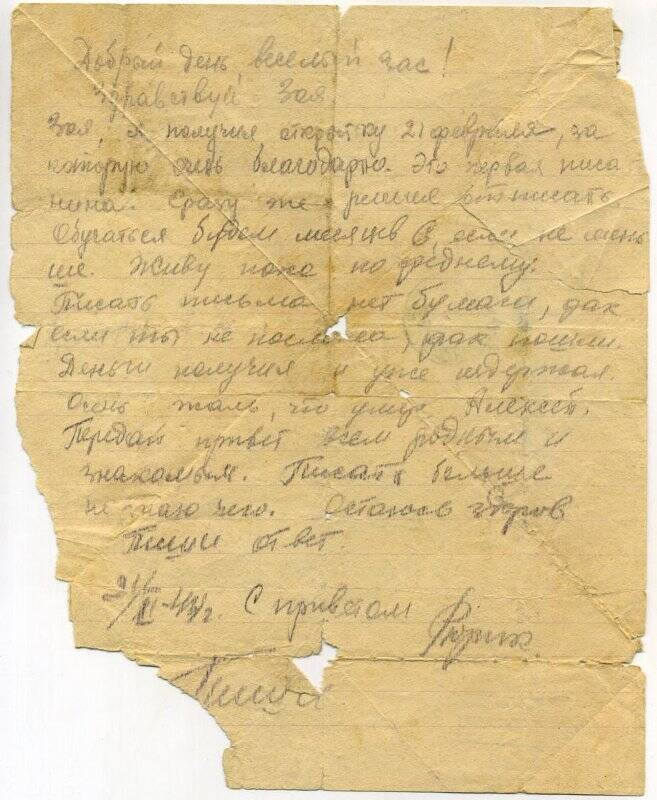 Добрый день веселый час!
Здравствуй Зоя
Зоя, я получил открытку 21 февраля, за
которую очень благодарю. Это первая писа
нина. Сразу же решил отписать.
Обучаться будем месяцев 6, если не мень
ше. Живу пока по среднему.
Писать письма нет бумаги, дак
если ты не послала, дак пошли.
Деньги получил и уже издержал.
Очень жаль, что умер Алексей.
Передай привет всем родным и
знакомым. Писать больше
не знаю чего. Остаюсь здоров
Пиши ответ.
21/II-44г. С приветом
Пиши